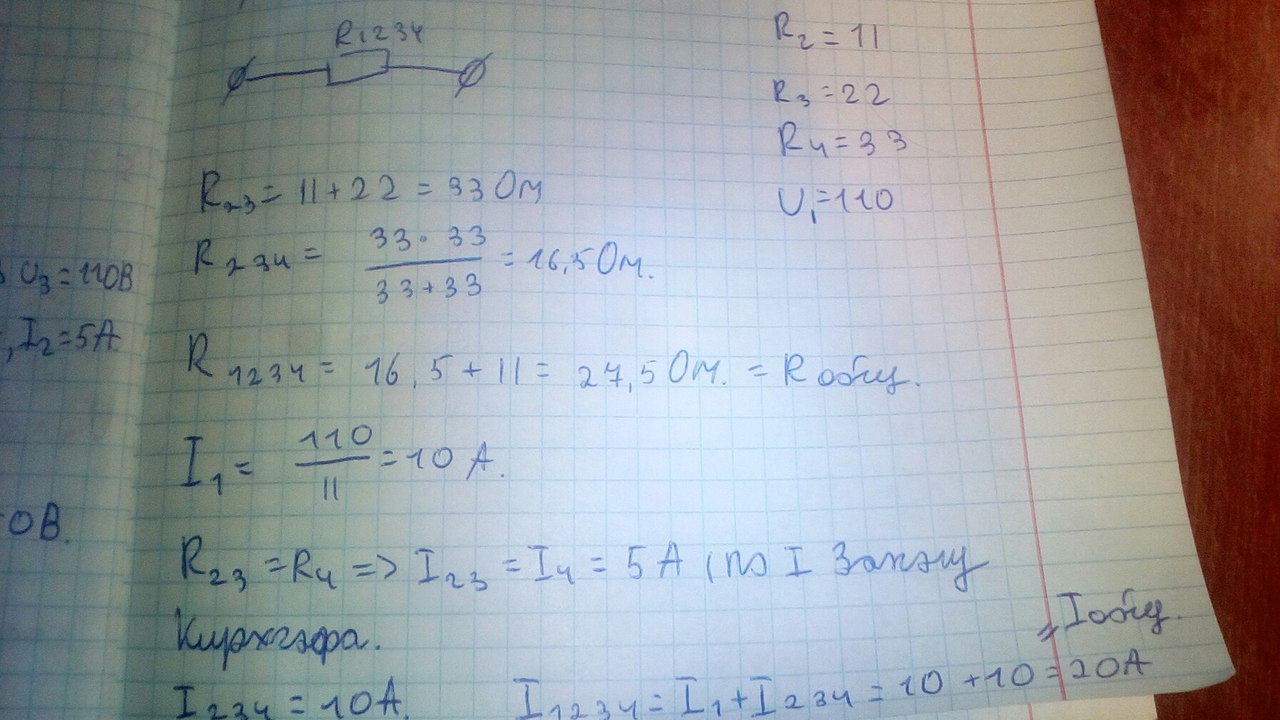 R1234
R2 = 11
R3 = 22
R4 = 33
U1 = 110
R23 = 11 + 22 = 33 Ом
R234 = 33 · 33 / 33 + 33 = 16,5 Ом.
U3 = 110В
, I2 = 5А
R1234 = 16,5 + 11 = 27,5 Ом. = R общ.
I1 = 110 / 11 = 10 А.
0В.
R23 = R4 => I23 = I4 = 5 А (по I Закону
Кирхгофа.
I234 = 10А. I1234 = I1 + I234 = 10 + 10 = 20А
= Iобщ.